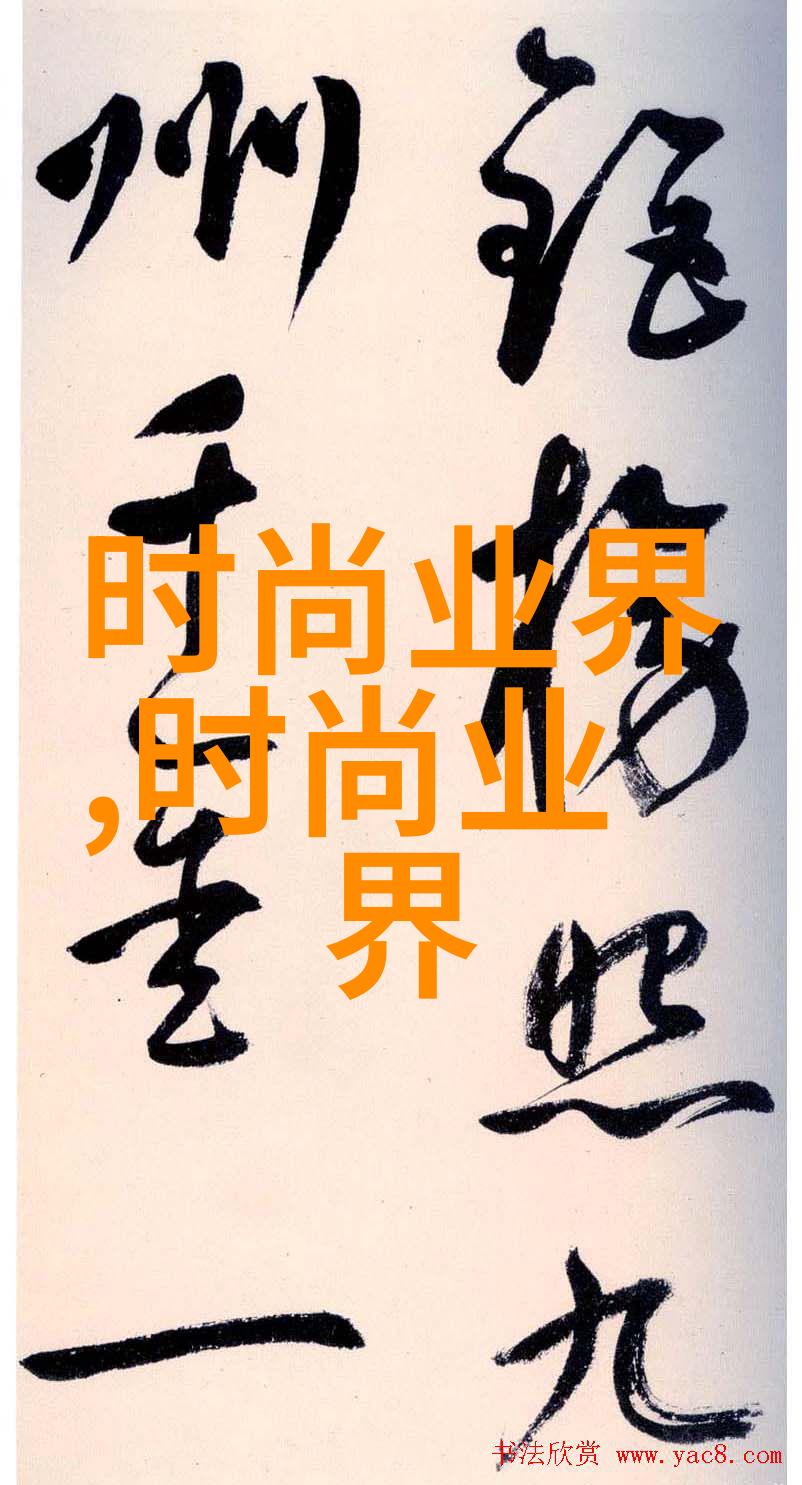 照九
州千一
时尚业界
,时尚业
界
书法欣赏 www.yac8.com